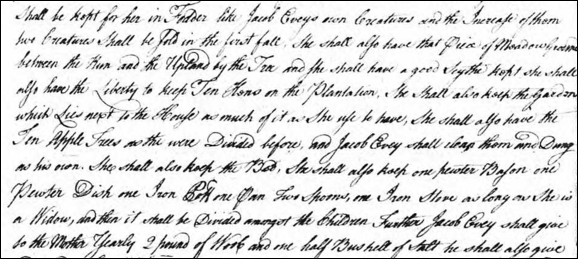 Shall be kept for her in Fodder like Jacob Eveys own Creatures and the Increase of them
two Creatures Shall be Sold in the first fall, She shall also have that Piece of Meadow Ground
between the Run and the Upland by the Tree and she shall have a good Scythe kept she shall
also have the Liberty to keep Ten Hens on the Plantation, She Shall also keep the Garden
which Lies next to the House as much of it as She use to have, She shall also have the
Ten Apple Trees as the were Divided before, and Jacob Evey shall clean them and Dung
as his own. She shall also keep the Bed, She shall also keep one pewter Bason one
Pewter Dish one Iron Pott one Pan Two Spoons, one Iron Stove as long as She is
a Widow, and then it shall be Divided amongst the Children Further Jacob Evey shall give
to the Mother Yearly 2 pound of Woob and one half Bushell of Salt he shall also give